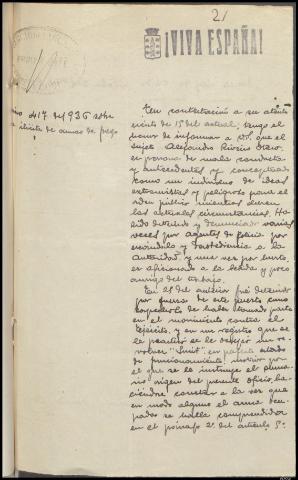 21
¡VIVA ESPAÑA!
417 del 936 sobre
de armas de fuego
En contestación a su atento
escrito de 15 del actual, tengo el
honor de informar a Vd. que el
sujeto Alejandro
es persona de mala conducta
y antecedentes y conceptuado
como un individuo de ideas
extremistas y peligroso para el
orden público mientras duren
las actuales circunstancias. Ha
sido detenido y denunciado varias
veces por agentes de
escándalo y desobediencia a la
Autoridad y una vez por hurto,
es aficionado a la bebida y poco
amigo del trabajo.
En 25 del anterior fué detenido
por fuerza de este puesto como
sospechoso de haber tomado parte
en el movimiento contra el
Ejército, y en un registro que se
le practicó se le ocupó un re-
volver "Smit" en estado
de funcionamiento, motivo por
el que se le instruye el suma-
rio origen del presente oficio, ha-
ciéndose constar a la vez que
en modo alguno el arma ocu-
pada se halla comprendida
en el párrafo 2º del artículo 5º